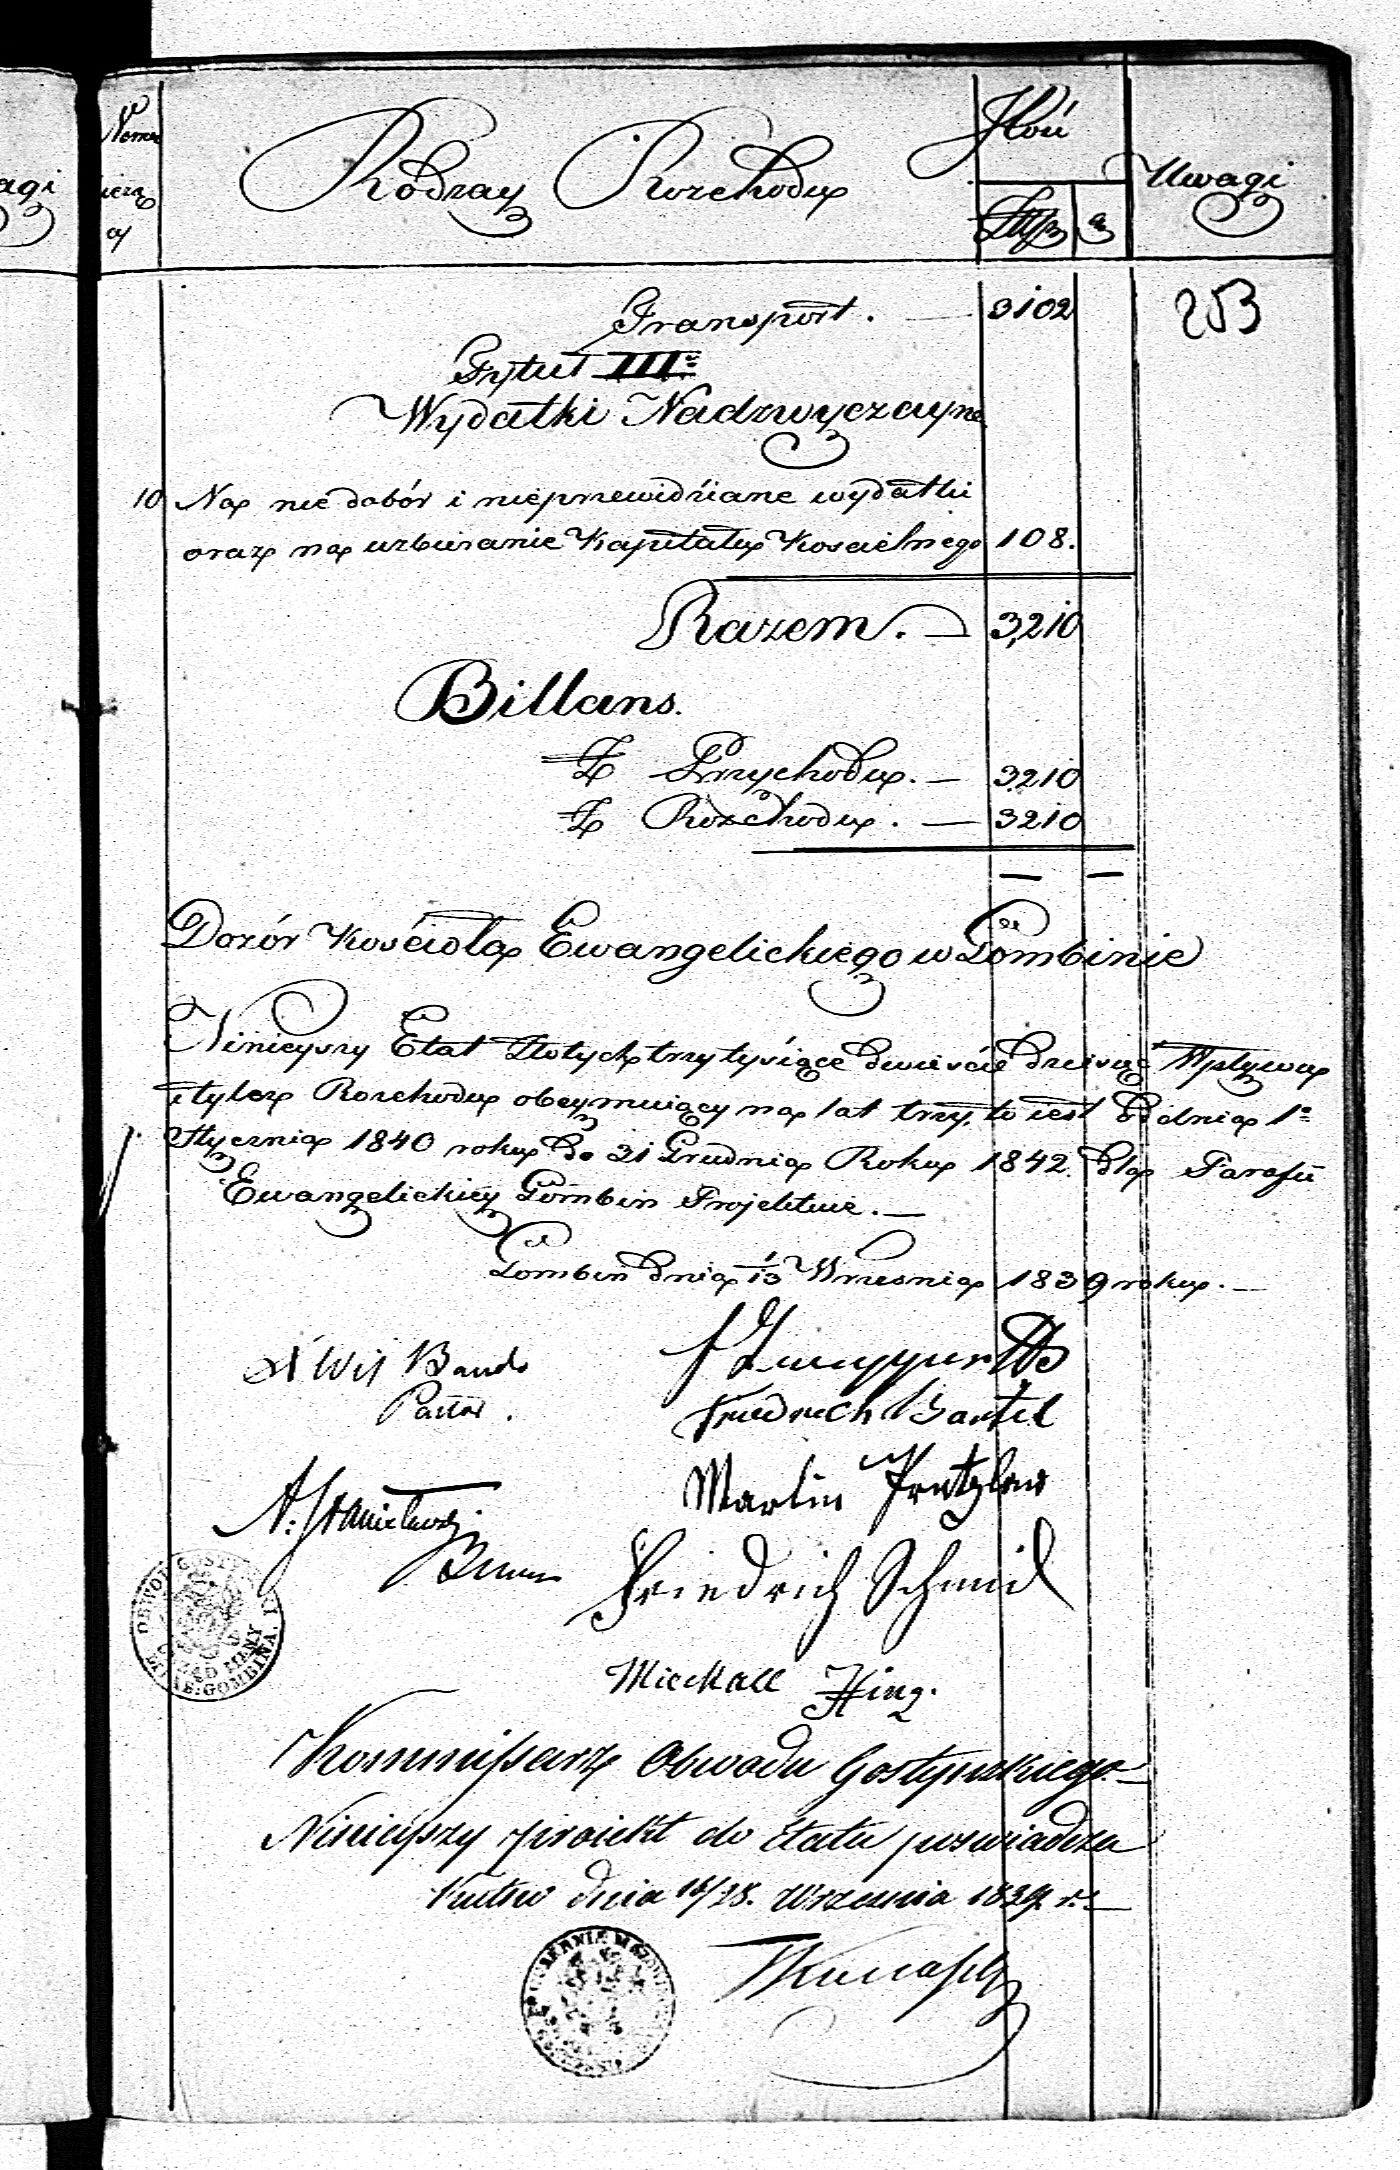 agi
Nomer
Rodzay Rozchodu
Ilość
Uwagi
Złtp
g
253
Transport. — 3102
Tytuł III:
Wydatki Nadzwyczayne
10 Na niedobór i nieprzewidziane wydatki
oraz na uzbieranie Kapitału Koscielnego 108.
Razem. — 3,210
Billans.
Z Przychodu. — 3210
Z Rozchodu. — 3210
— —
Dozór Kościoła Ewangelickiego w Gombinie
Ninieyszy Etat Złotych trzy tysiące dwieście dziesięć Wpływu
i tyleż Rozchodu obeymuiący na lat trzy, to iest Od dnia 1º
Stycznia 1840 roku do 31 Grudnia Roku 1842. dla Parafii
Ewangelickiey Gombin Projektuie. —
Gombin dnia 1/13 Wrzesnia 1839 roku. —
Wil
Pastor.
Friedrich Bartel
Martin
Friedrich Schmid
Mickael Hinz.
OBWOD GOSTYNSKI
URZĄD MUNY
MIAS: GOMBINA.
Kommissarz Obwodu Gostynskiego. —
Ninieyszy proiekt do Etatu poswiadcza
Kutno dnia 16/28. Wrzesnia 1839 r. —